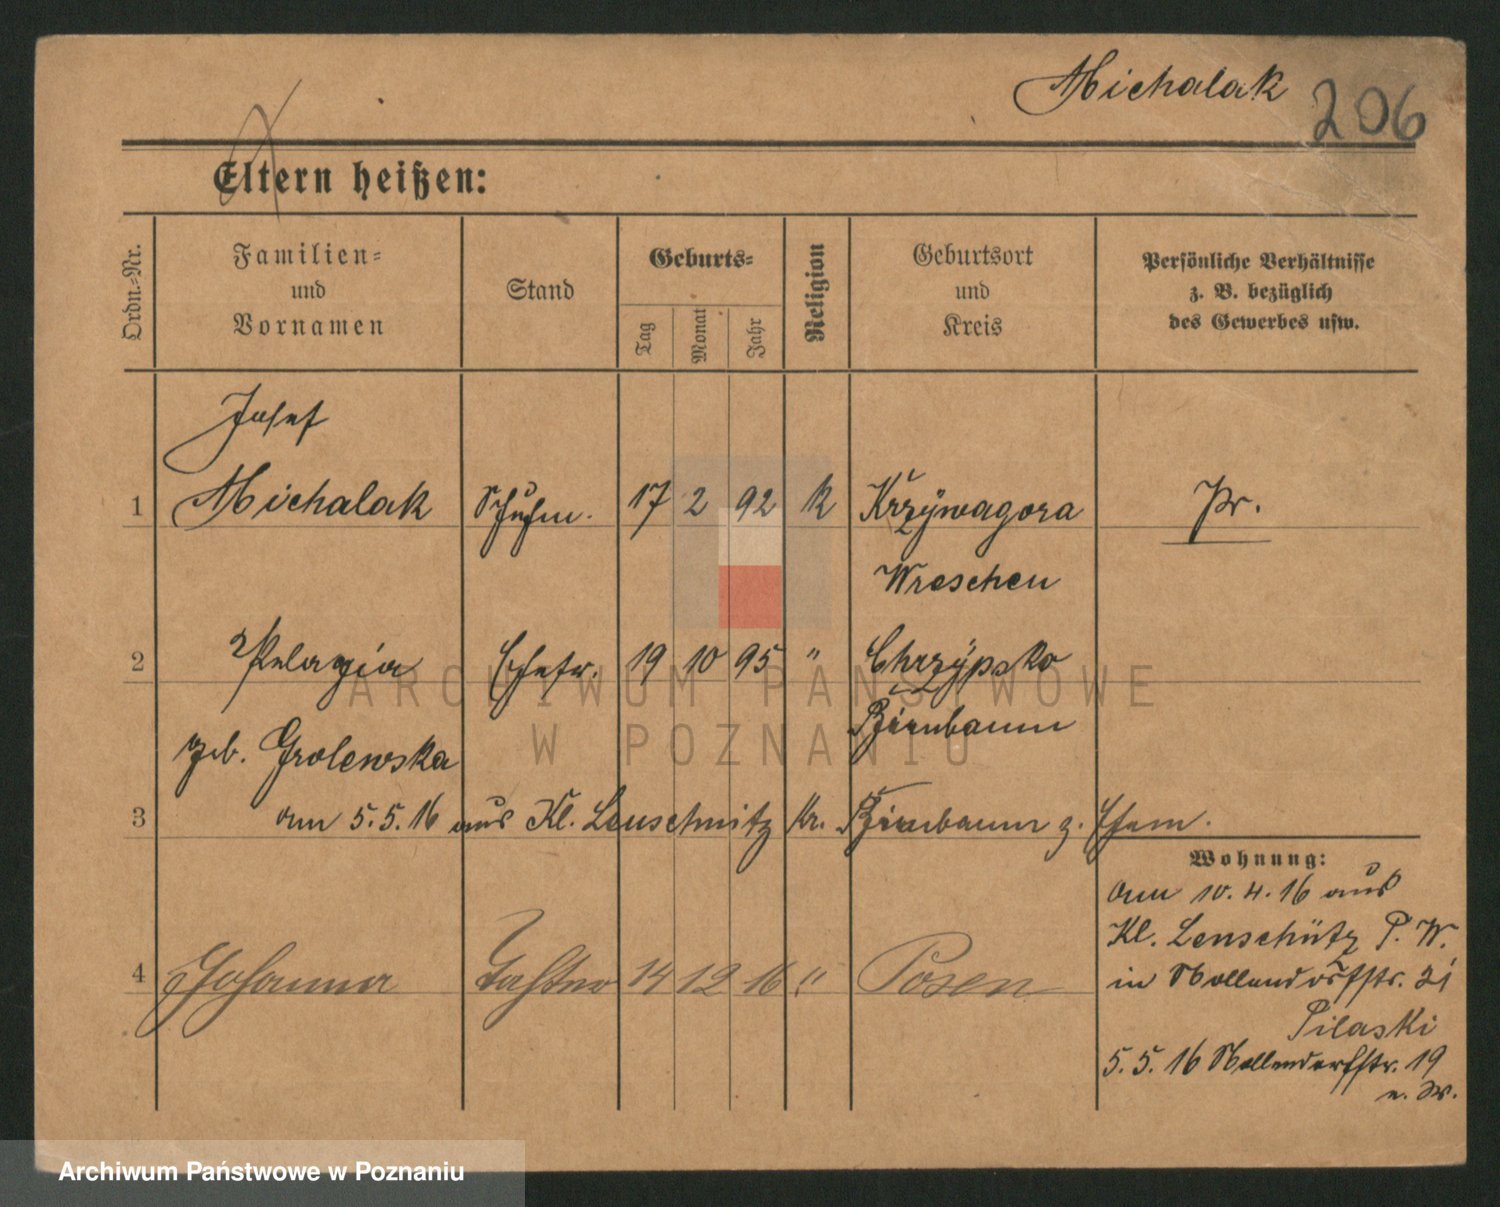 Michalak 206
Eltern heißen:
Ordn.-Nr.
Familien-
und
Vornamen
Stand
Geburts-
Tag
Monat
Jahr
Religion
Geburtsort
und
Kreis
Persönliche Verhältnisse
z. B. bezüglich
des Gewerbes usw.
Josef
1 Michalak Schuhm. 17 2 92 K Krzywagora Pr.
Wreschen
2 Pelagia Ehefr. 19 10 95 " Chrzypsko
Birnbaum
geb. Grolewska
3 am 5.5.16 aus Kl. Lenschnitz Kr. Birnbaum z. Ehem.
Wohnung:
am 10.4.16 aus
Kl. Lenschütz P. W.
4 Johanna Tochter 14 12 16 " Posen
in Nollendorfstr. 21
Pilaski
5.5.16 Nollendorfstr. 19
ARCHIWUM PAŃSTWOWE
W POZNANIU
Archiwum Państwowe w Poznaniu